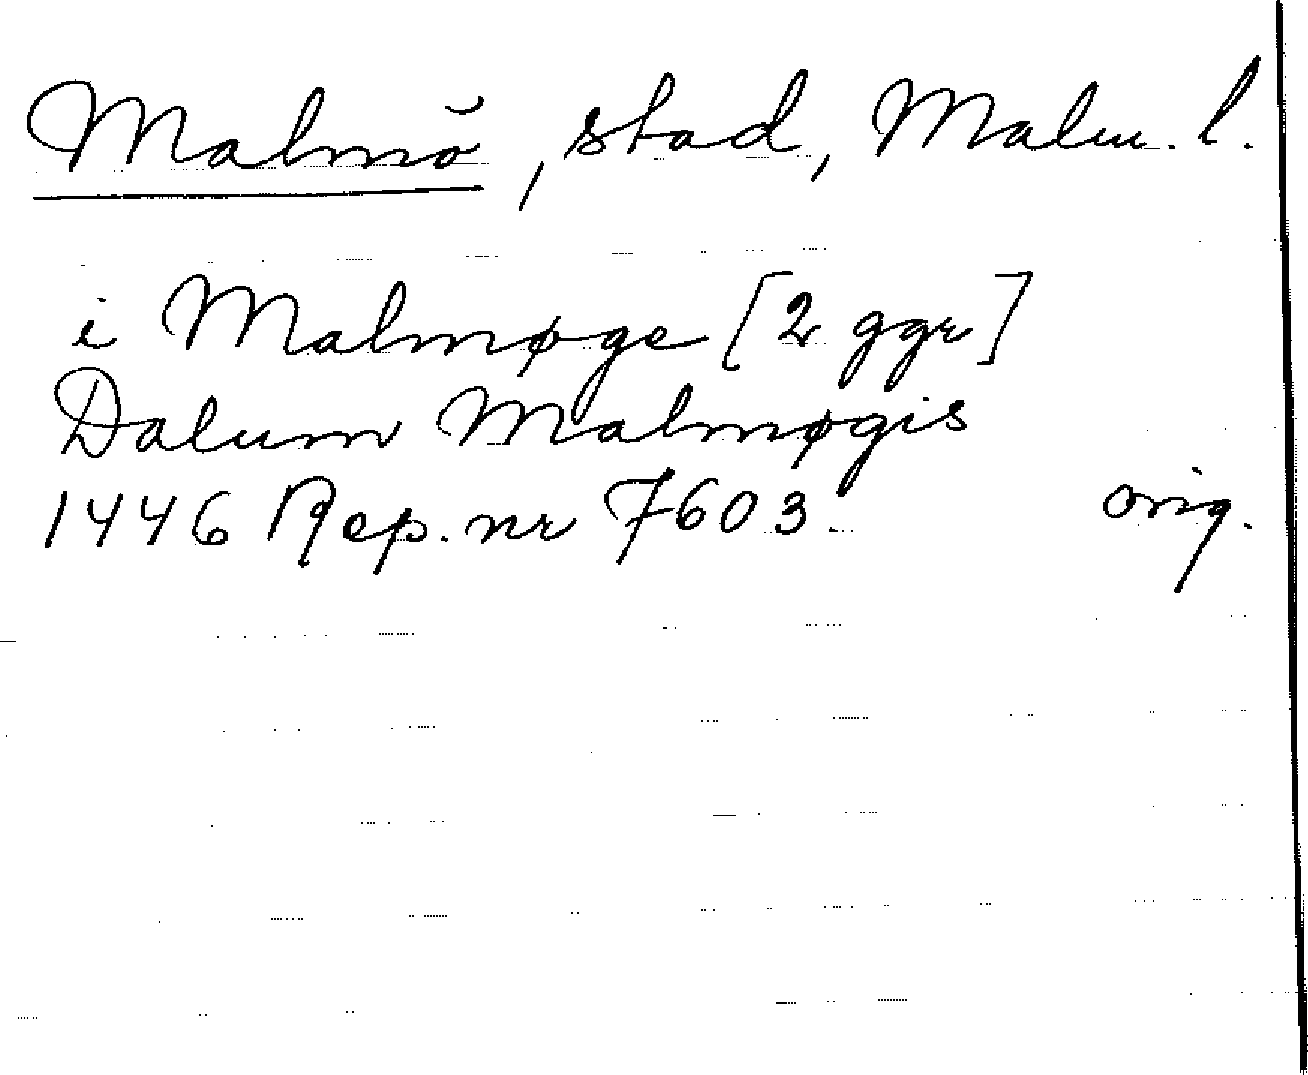 Malmö, stad, Malm. l.
i Malmøge [2 ggr]
Datum Malmøgis
1446 Rep. nr 7603. orig.